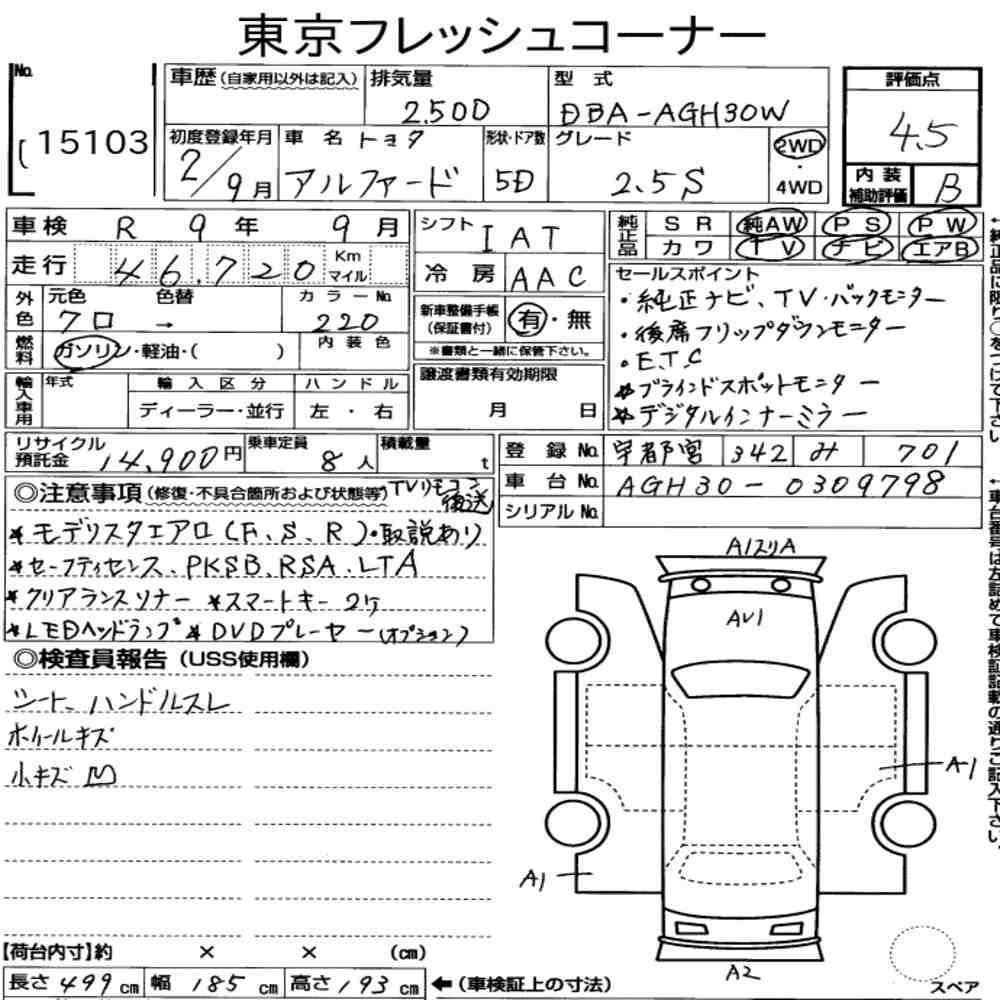 東京フレッシュコーナー
No. 15103
車歴(自家用以外は記入) 排気量 2.500 型式 DBA-AGH30W
評価点 4.5
初度登録年月 2/9月 車名 トヨタ アルファード 形状・ドア数 5D グレード 2.5S 2WD・4WD
内装補助評価 B
車検 R 9年 9月
シフト IAT
純正品 SR 純AW PS PW
カワ TV ナビ エアB
走行 46,720 Km マイル
冷房 AAC
外色 元色 クロ 色替 → カラーNo. 220
新車整備手帳(保証書付) 有・無
※書類と一緒に保管下さい。
燃料 ガソリン・軽油・( ) 内装色
セールスポイント
・純正ナビ、TV・バックモニター
・後席フリップダウンモニター
・E.T.C
★ブラインドスポットモニター
★デジタルインナーミラー
輸入車用 年式 輸入区分 ハンドル
ディーラー・並行 左・右
譲渡書類有効期限
月 日
リサイクル預託金 14,900円 乗車定員 8人 積載量 t
登録No. 宇都宮 342 み 701
車台No. AGH30-0309798
シリアルNo.
◎注意事項(修復・不具合箇所および状態等) TVリモコン後送
★モデリスタエアロ(F、S、R)・取説あり
★セーフティセンス、PKSB、RSA、LTA
★クリアランスソナー ★スマートキー2ケ
★LEDヘッドランプ ★DVDプレーヤー(オプション)
◎検査員報告(USS使用欄)
シート、ハンドルスレ
ホイールキズ
小キズ凹
A1スリA
AV1
A-1
A1
A2
スペア
【荷台内寸】約 × × (cm)
長さ499cm 幅185cm 高さ193cm ←(車検証上の寸法)
←純正品に限り○をつけて下さい。
←車台番号は左詰めて車検証記載の通りご記入下さい。